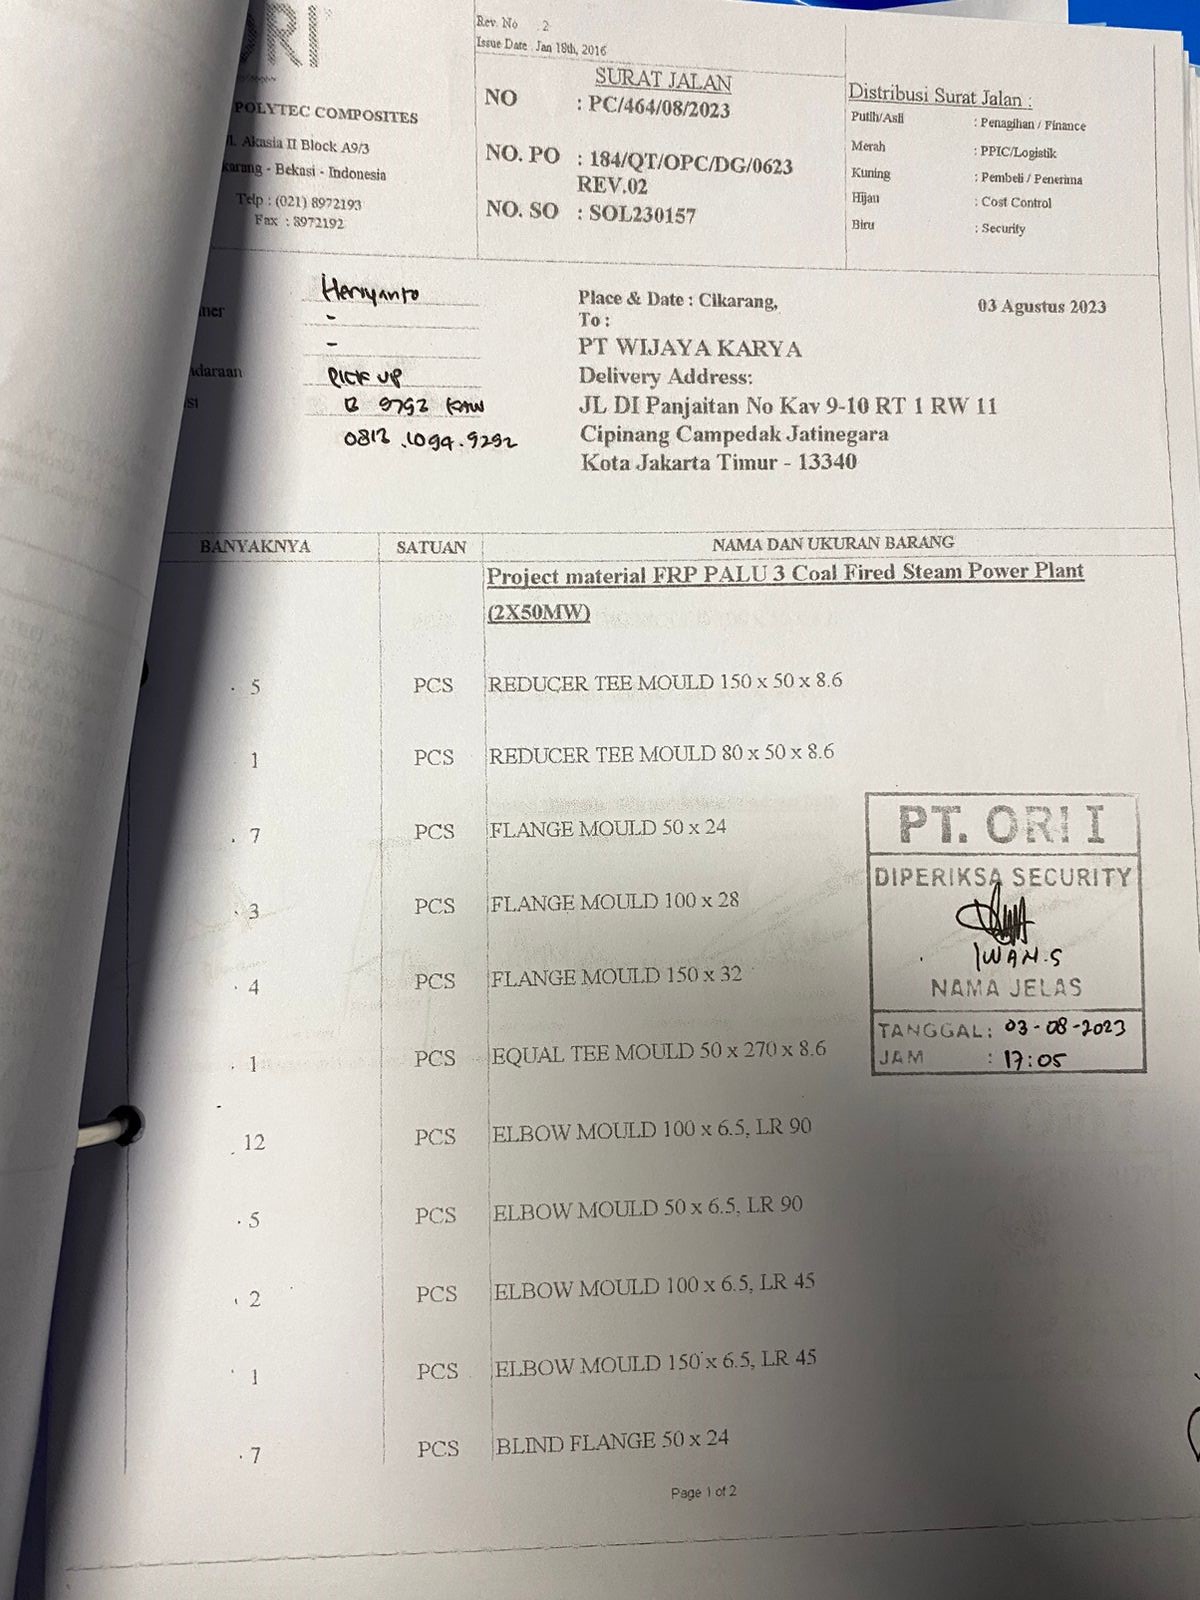 ORI
POLYTEC COMPOSITES
Akasia II Block A9/3
karang - Bekasi - Indonesia
Telp : (021) 8972193
Fax : 8972192
Rev. No 2
Issue Date Jan 18th, 2016
SURAT JALAN
NO : PC/464/08/2023
NO. PO : 184/QT/OPC/DG/0623
REV.02
NO. SO : SOL230157
Distribusi Surat Jalan :
Putih/Asli : Penagihan / Finance
Merah : PPIC/Logistik
Kuning : Pembeli / Penerima
Hijau : Cost Control
Biru : Security
Heriyanto
mer -
-
ndaraan PICK UP
si B 9792
0812.1094.9292
Place & Date : Cikarang, 03 Agustus 2023
To :
PT WIJAYA KARYA
Delivery Address:
JL DI Panjaitan No Kav 9-10 RT 1 RW 11
Cipinang Campedak Jatinegara
Kota Jakarta Timur - 13340
BANYAKNYA SATUAN NAMA DAN UKURAN BARANG
Project material FRP PALU 3 Coal Fired Steam Power Plant
(2X50MW)
5 PCS REDUCER TEE MOULD 150 x 50 x 8.6
1 PCS REDUCER TEE MOULD 80 x 50 x 8.6
7 PCS FLANGE MOULD 50 x 24
3 PCS FLANGE MOULD 100 x 28
4 PCS FLANGE MOULD 150 x 32
1 PCS EQUAL TEE MOULD 50 x 270 x 8.6
12 PCS ELBOW MOULD 100 x 6.5, LR 90
5 PCS ELBOW MOULD 50 x 6.5, LR 90
2 PCS ELBOW MOULD 100 x 6.5, LR 45
1 PCS ELBOW MOULD 150 x 6.5, LR 45
7 PCS BLIND FLANGE 50 x 24
PT. ORI I
DIPERIKSA SECURITY
IWAN.S
NAMA JELAS
TANGGAL: 03-08-2023
JAM : 17:05
Page 1 of 2